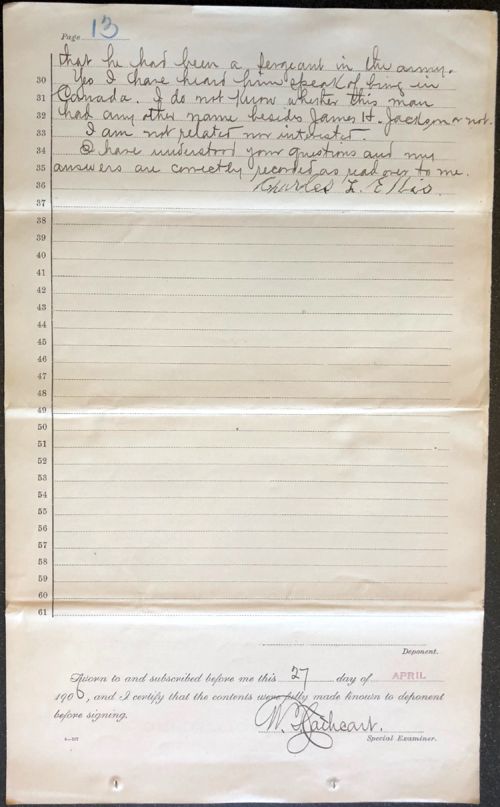 Page 13
that he had been a sergeant in the army.
30 Yes I have heard him speak of being in
31 Canada. I do not know whether this man
32 had any other name besides James H. Jackson or not.
33 I am not related nor interested.
34 I have understood your questions and my
35 answers are correctly recorded as read over to me.
36 Charles L. Ellis.
37
38
39
40
41
42
43
44
45
46
47
48
49
50
51
52
53
54
55
56
57
58
59
60
61
Deponent.
Sworn to and subscribed before me this 27 day of APRIL
1906, and I certify that the contents were fully made known to deponent
before signing.
W. Cathcart.
Special Examiner.